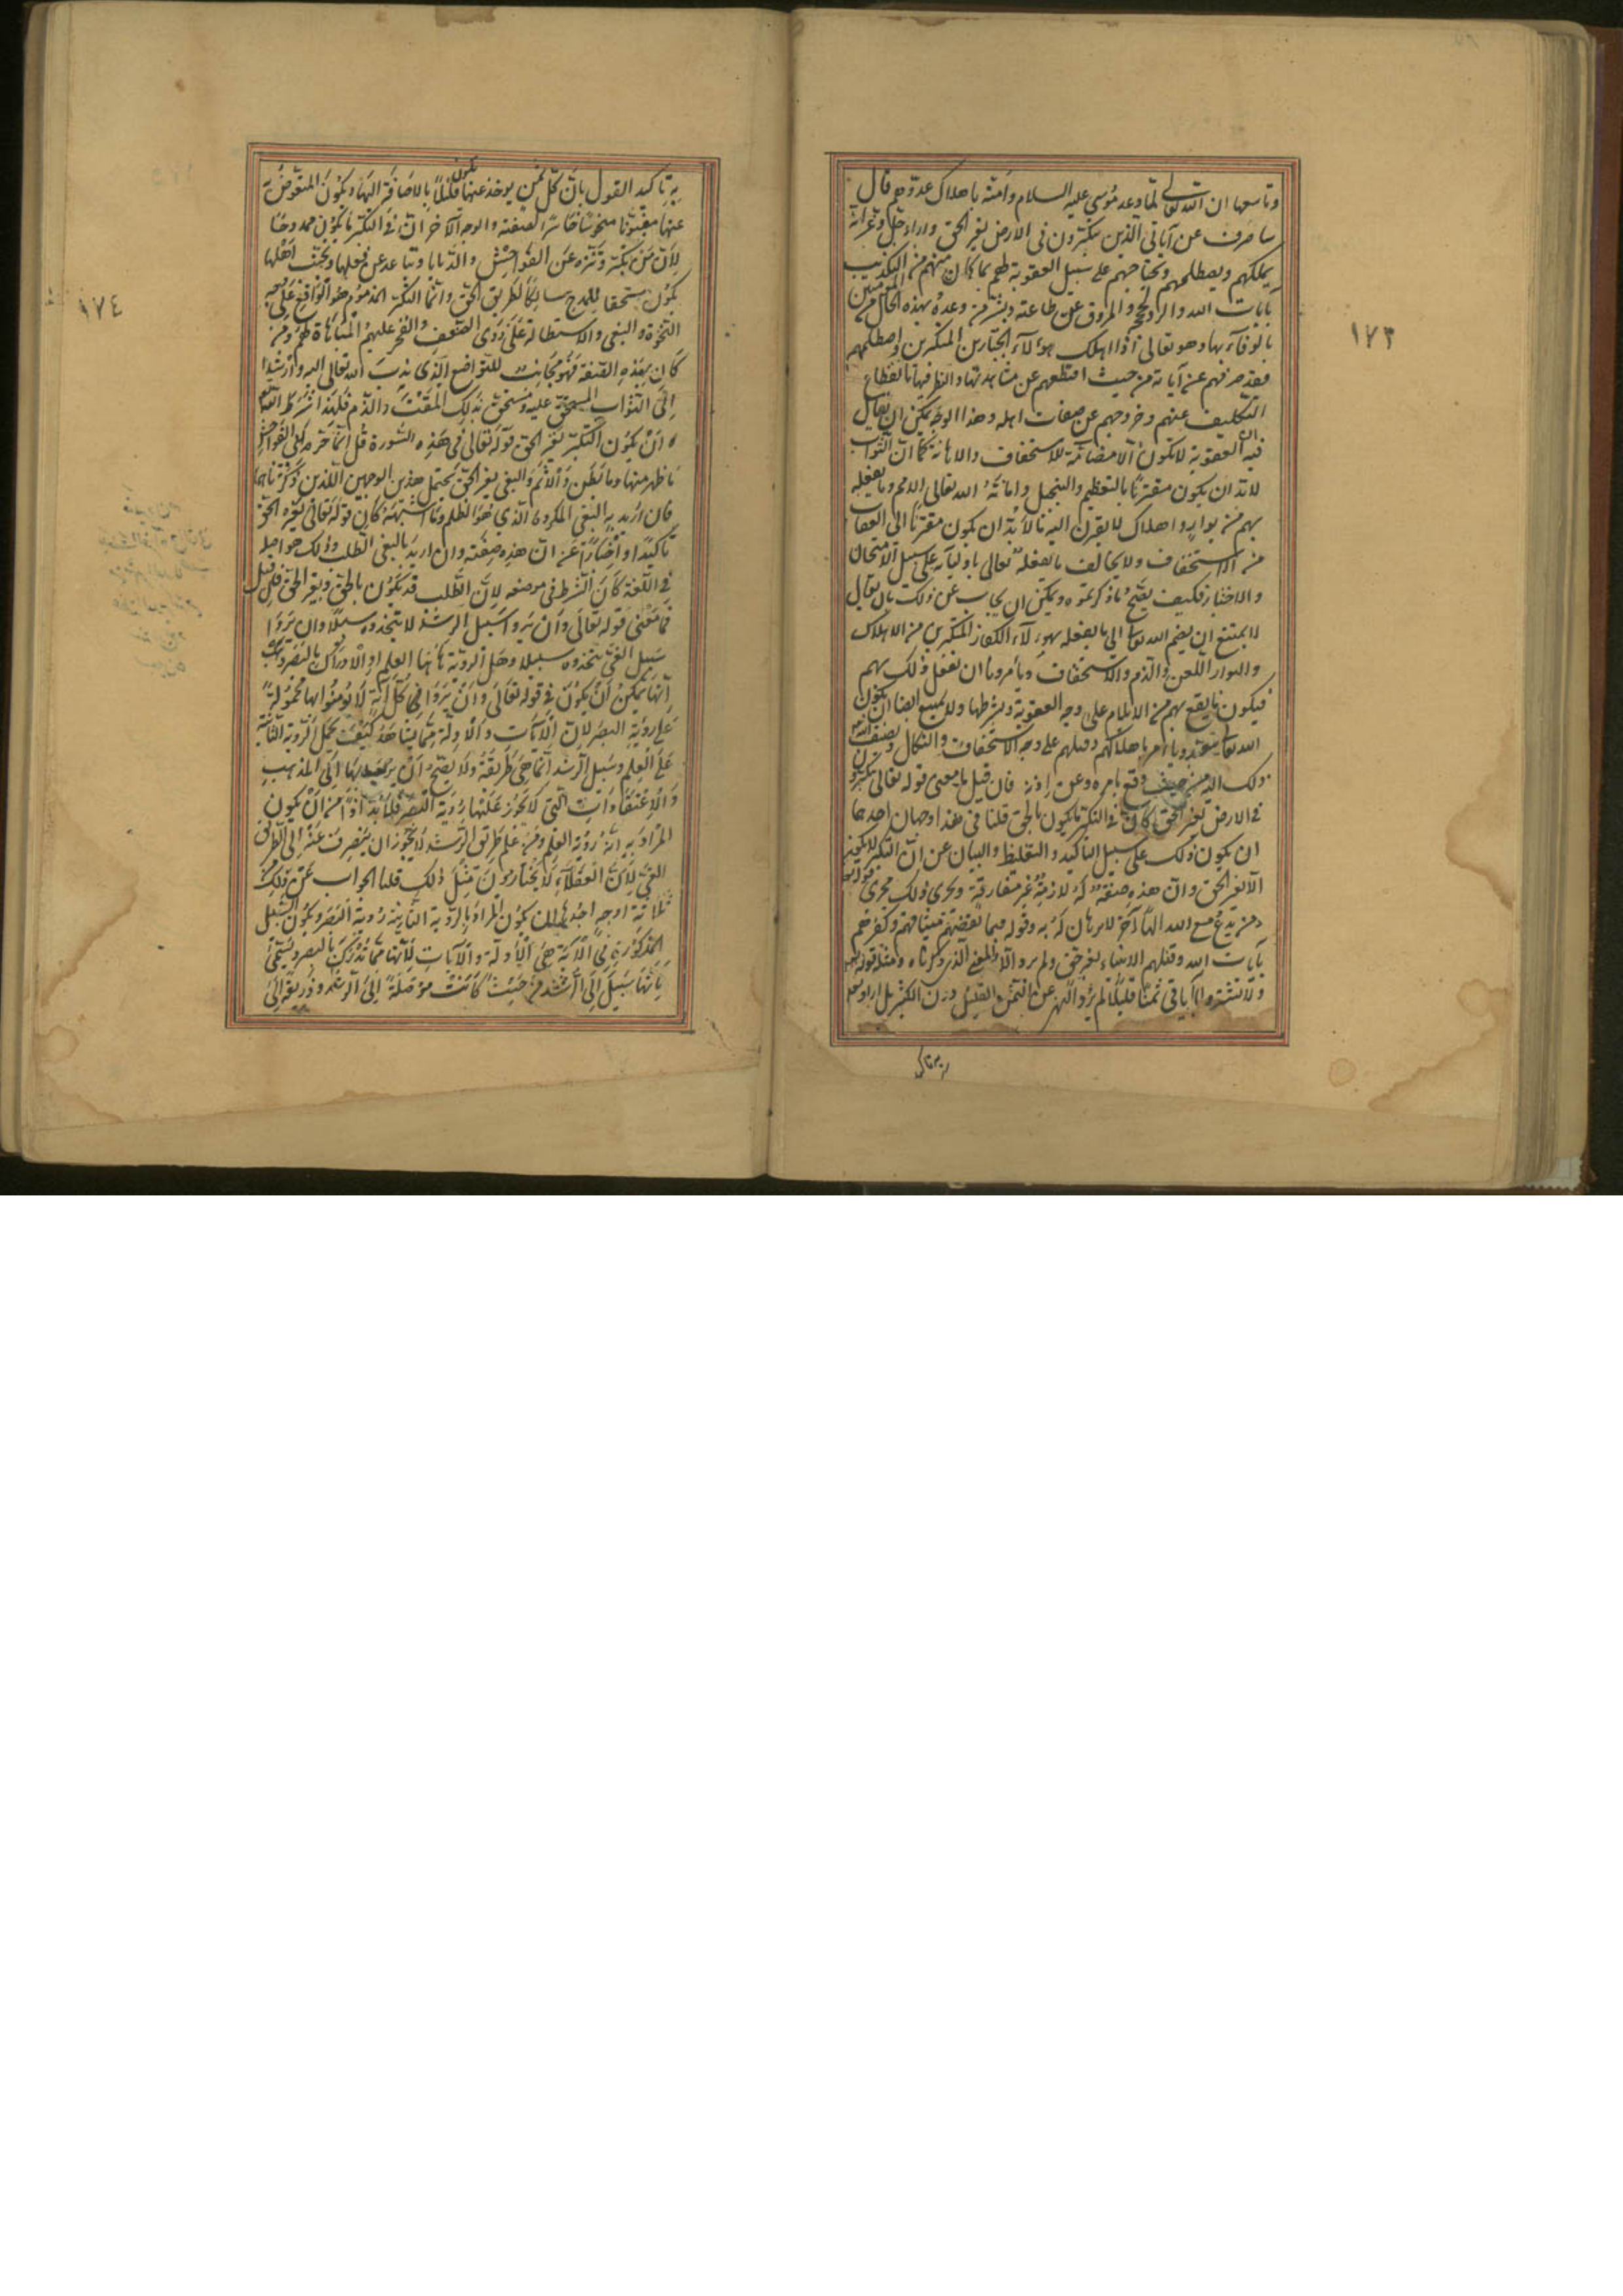 وتاسعها ان الله تعالى لما وعد موسى عليه السلام وامته باهلاك عدوهم قال
ساصرف عن آياتي الذين يتكبرون في الارض بغير الحق واراد جل وعز انه
يهلكهم ويصطلمهم ويجتاحهم على سبيل العقوبة لهم بما كان منهم من التكذيب
بآيات الله والرد لحججه والمروق عن طاعته وبشر من وعده بهذه الحال من المؤمنين
بالوفاء بها وهو تعالى اذا اهلك هؤلاء الجبارين المتكبرين واصطلمهم
فقد صرفهم عن آياته من حيث اقتطعهم عن مشاهدتها والنظر فيها بانقطاع
التكليف عنهم وخروجهم عن صفات اهله وهذا الوجه يمكن ان يقال
فيه ان العقوبة لا تكون الا مضامة للاستخفاف والاهانة كما ان الثواب
لا بد ان يكون مقترنا بالتعظيم والتبجيل واماتة الله تعالى الامم وما يفعله
بهم من بوار واهلاك لا يقرن اليه ما لا بد ان يكون مقترنا الى العقاب
من الاستخفاف ولا يخالف ما يفعله تعالى باوليائه على سبيل الامتحان
والاختبار فكيف يصح ما ذكرتموه ويمكن ان يجاب عن ذلك بان يقال
لا يمتنع ان يضم الله تعالى الى ما يفعله بهؤلاء الكفار المتكبرين من الاهلاك
والبوار اللعن والذم والاستخفاف ويأمرنا ان نفعل ذلك بهم
فيكون ما يقع بهم من الايلام على وجه العقوبة وبشرطها ولا يمتنع ايضا ان يكون
الله تعالى يأمر باهلاكهم وقتلهم على وجه الاستخفاف والنكال ويضيف الله
ذلك اليه من حيث وقع بامره وعن اذنه فان قيل ما معنى قوله تعالى يتكبرون
في الارض بغير الحق كان في التكبر ما يكون بالحق قلنا في هذا وجهان احدهما
ان يكون ذلك على سبيل التأكيد والتغليظ والبيان عن ان التكبر لا يكون
الا بغير الحق وان هذه صفة له لازمة غير مفارقة ويجري ذلك مجرى قوله تعالى
ومن يدع مع الله الها آخر لا برهان له به وقوله فبما نقضهم ميثاقهم وكفرهم
بآيات الله وقتلهم الانبياء بغير حق ولم يرد الا المعنى الذي ذكرناه ومثله قوله
ولا تشتروا بآياتي ثمنا قليلا لم يرد النهي عن الثمن القليل دون الكثير بل اراد
١٧٣
به تأكيد القول بان كل ثمن يوخذ عنها يكون قليلا بالاضافة اليها ويكون المتعوض به
عنها مغبونا مبخوسا خاسر الصفقة والوجه الآخر ان في التكبر ما يكون ممدوحا
لان من تكبر وتنزه عن الفواحش والدنايا وتباعد عن فعلها وتجنب اهلها
يكون مستحقا للمدح سالكا لطريق الحق وانما التكبر المذموم هو الواقع على وجه
النخوة والبغي والاستطالة على ذوي الضعف والفخر عليهم والمباهاة لهم ومن
كان بهذه الصفة فهو مجانب للتواضع الذي ندب الله تعالى اليه وارشد
الى الثواب المستحق عليه ومستحق بذلك المقت والذم فلهذا شرط
ان يكون التكبر بغير الحق قوله تعالى في هذه السورة قل انما حرم ربي الفواحش
ما ظهر منها وما بطن والاثم والبغي بغير الحق يحتمل هذين الوجهين اللذين ذكرناهما
فان اريد به البغي المكروه الذي هو الظلم وما اشبهه كان قوله تعالى بغير الحق
تأكيدا واخبارا عن ان هذه صفته وان اريد بالبغي الطلب وذلك هو اصله
في اللغة كان الشرط في موضعه لان الطلب قد يكون بالحق وبغير الحق فان قيل
فما معنى قوله تعالى وان يروا سبيل الرشد لا يتخذوه سبيلا وان يروا
سبيل الغي يتخذوه سبيلا وهل الرؤية هاهنا العلم او الادراك بالبصر وهب
انها يمكن ان يكون في قوله تعالى وان يروا كل آية لا يؤمنوا بها محمولة
على رؤية البصر لان الآيات والادلة مما يشاهد كيف يحمل الرؤية الثانية
على العلم وسبيل الرشد انما هي طريقه ولا يصح ان يرجع بها الى المذاهب
والاعتقادات التي لا يجوز عليها رؤية البصر فلا بد اذا من ان يكون
المراد به انه رؤية العلم ومن علم طريق الرشد لا يجوز ان ينصرف عنه الى طريق
الغي لان العقلاء لا يختارون مثل ذلك قلنا الجواب عن ذلك
ثلاثة اوجه احدها ان يكون المراد بالرؤية الثانية رؤية البصر ويكون السبيل
المذكورة في الآية هي الادلة والآيات لانها مما تدرك بالبصر ويسمى
بانها سبيل الى الرشد من حيث كانت موصلة الى الرشد وذريعة الى
١٧٤